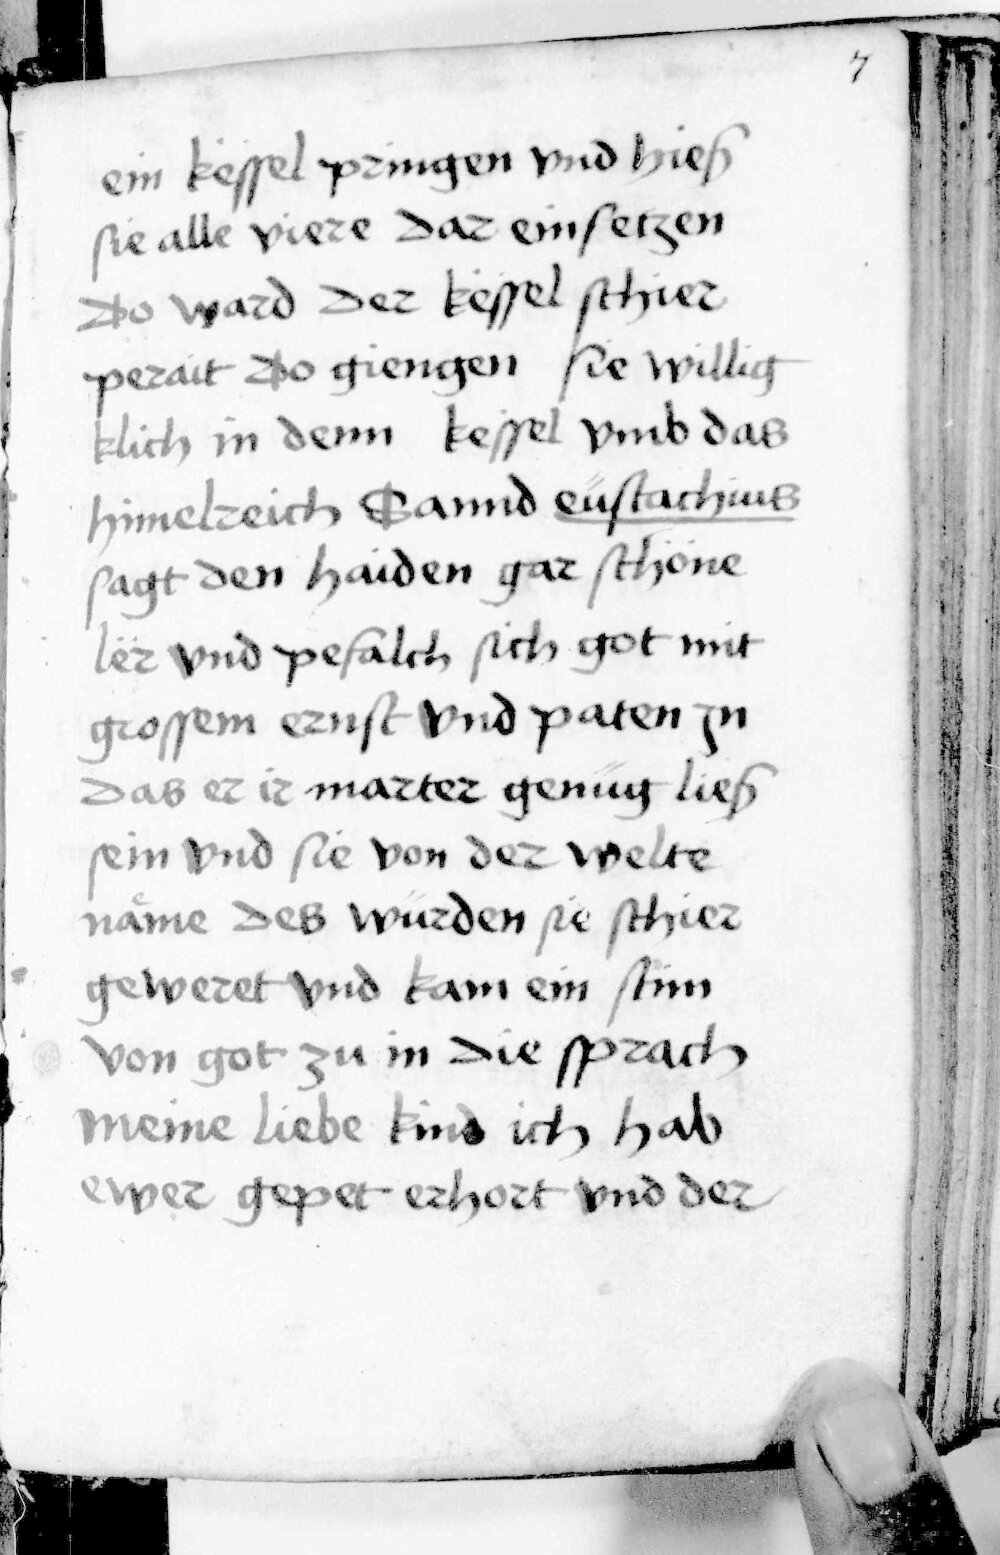 7
ein kessel pringen vnd hieß
sie alle viere dar ein setzen
Do ward der kessel schier
perait Do giengen sie willig
klich in denn kessel vmb das
himelreich Sannd eüstachius
sagt den haiden gar schöne
lër vnd pefalch sich got mit
grossem ernst vnd paten zu
das er ir marter genüg ließ
sein vnd sie von der welte
näme des würden sie schier
geweret vnd kam ein stim
von got zu in die sprach
meine liebe kind ich hab
ewer gepet erhort vnd der